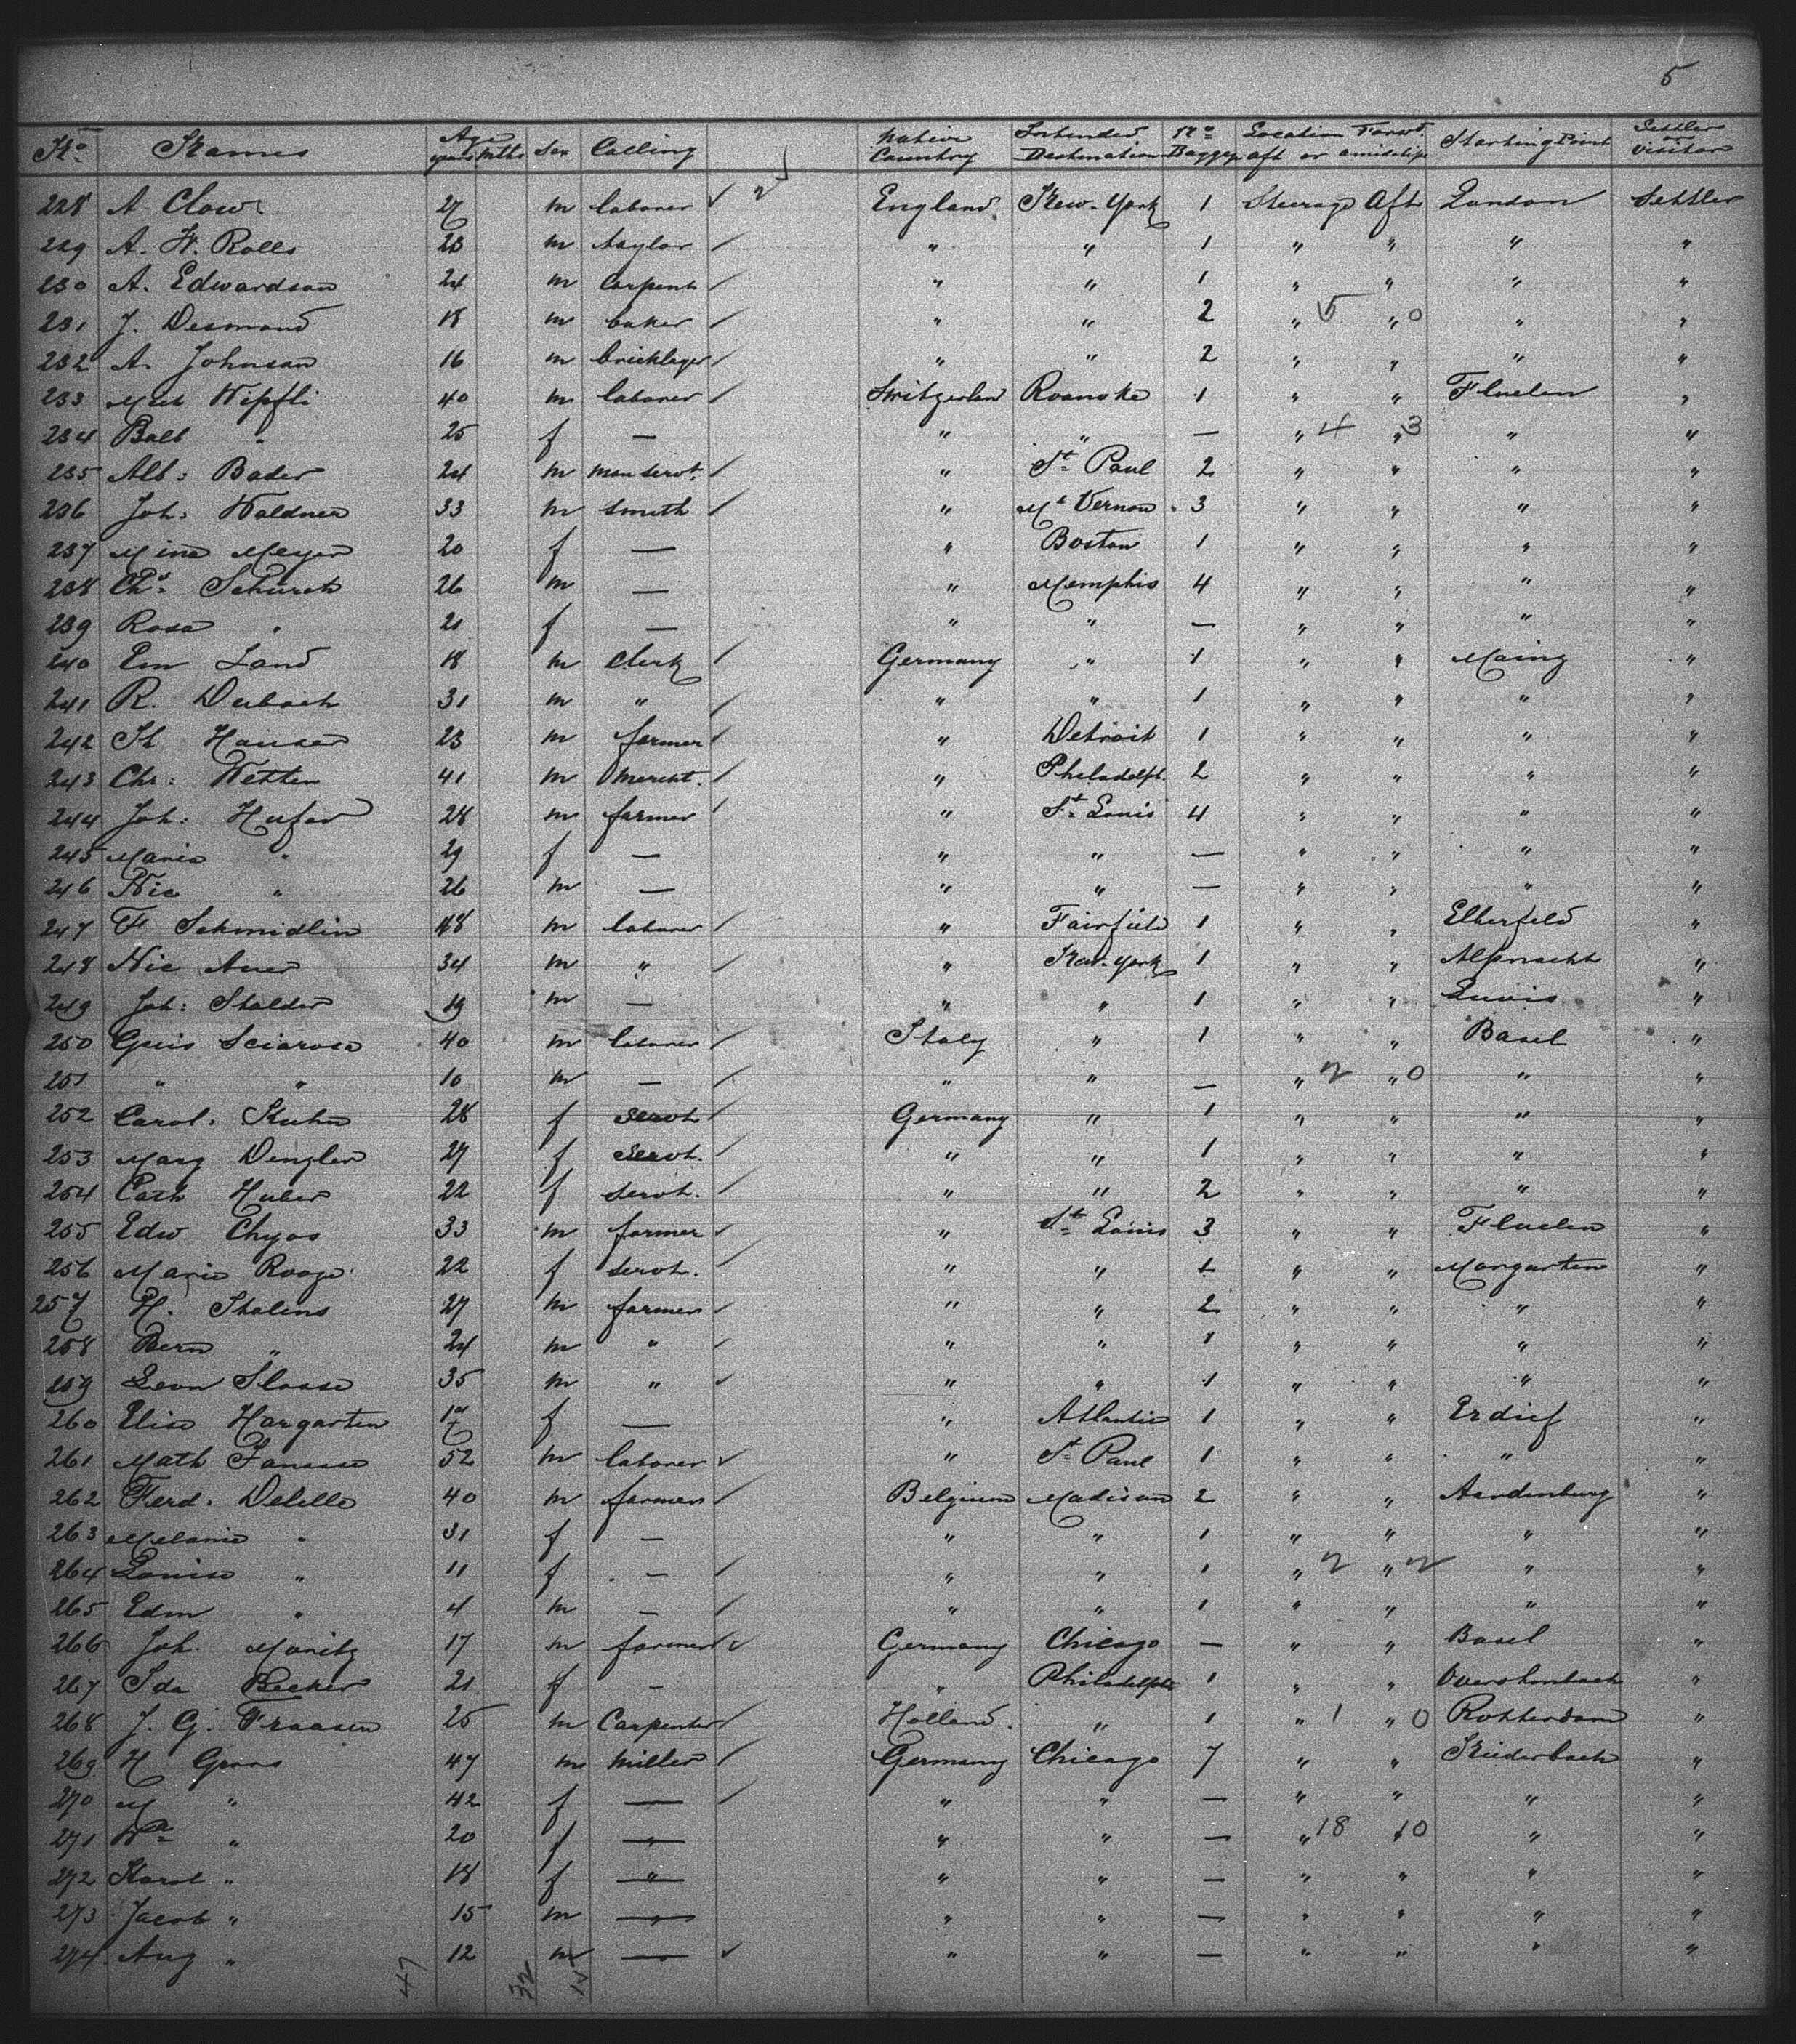 5
No Names Age years Mths Sex Calling Native Country Intended Destination No Baggage Location Forwd. aft or amidships Starting Point Settler or Visitor
2
228 A Clow 27 m laborer ✓ England. New-York 1 Steerage Aft London Settler
229 A. W. Rolls 23 m taylor ✓ " " 1 " " " "
230 A. Edwardson 24 m Carpent ✓ " " 1 " " " "
231 J. Desmond 18 m baker ✓ " " 2 " 5 " 0 " "
232 A. Johnson 16 m bricklayer ✓ " " 2 " " " "
233 Mich Wipfli 40 m laborer ✓ Switzerland Roanoke 1 " " Fluelen "
234 Balt " 25 f — " " — " 4 " 3 " "
235 Alb: Bader 24 m manservt. ✓ " St Paul 2 " " " "
236 Joh: Waldner 33 m smith ✓ " Mt Vernon 3 " " " "
237 Mina Meyer 20 f — " Boston 1 " " " "
238 Chs Schürch 26 m — " Memphis 4 " " " "
239 Rosa " 21 f — " " — " " " "
240 Em Land 18 m Clerk ✓ Germany " 1 " " Mainz "
241 R. Derbach 31 m " ✓ " " 1 " " " "
242 St Hauser 23 m farmer ✓ " Detroit 1 " " " "
243 Chr: Wetten 41 m Mercht. ✓ " Philadelph. 2 " " " "
244 Joh: Hufar 28 m farmer ✓ " St Louis 4 " " " "
245 Maria " 29 f — " " — " " " "
246 Nic " 26 m — " " — " " " "
247 F Schmidlin 48 m laborer ✓ " Fairfield 1 " " Elberfeld "
248 Nic Auer 34 m " ✓ " New-York 1 " " Alpnacht "
249 Joh: Stalder 19 m — " " 1 " " "
250 Guis Sciarosa 40 m laborer ✓ Italy " 1 " " Basel "
251 " " 10 m — " " — " 2 " 0 " "
252 Carol. Kuhn 28 f Servt ✓ Germany " 1 " " " "
253 Marg Dengler 27 f Servt. ✓ " " 1 " " " "
254 Cath Huber 22 f servt. ✓ " " 2 " " " "
255 Edw Chyos 33 m farmer ✓ " St Louis 3 " " Fluelen "
256 Marie Rooze 22 f servt. ✓ " " 1 " " Morgarten "
257 H. Stalins 27 m farmer ✓ " " 2 " " " "
258 Bern " 24 m " ✓ " " 1 " " " "
259 Leon Slosse 35 m " ✓ " " 1 " " " "
260 Elise Hargarten f — " Atlantic 1 " " Erdief "
261 Math Janssen 52 m laborer ✓ " St Paul 1 " " " "
262 Ferd. Delille 40 m farmer ✓ Belgium Madison 2 " " Aardenburg "
263 Melanie " 31 f — " " 1 " " " "
264 Louise " 11 f — ✓ " " 1 " 2 " 2 " "
265 Edm " 4 m — ✓ " " 1 " " " "
266 Joh. Moritz 17 m farmer ✓ Germany Chicago — " " Basel "
267 Ida Becker 21 f — " Philadelphi 1 " " "
268 J. G. Fraasen 25 m Carpenter ✓ Holland. " 1 " 1 " 0 Rotterdam "
269 H Gross 47 m Miller ✓ Germany Chicago 7 " " Niederbach "
270 M " 42 f — ✓ " " — " " " "
271 Wa " 20 f " " " — " 18 " 10 " "
272 Karol " 18 f " " " — " " " "
273 Jacob " 15 m " " " — " " " "
274 Aug " 12 m — ✓ " " — " " " "
47 32 15